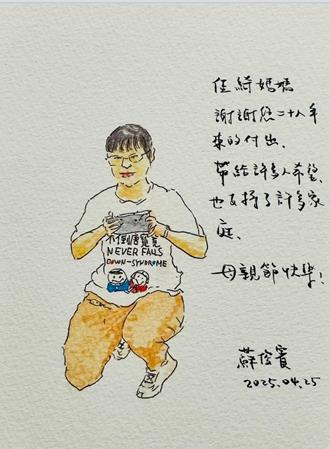 佳綺媽媽
謝謝您二十八年
來的付出、
帶給許多人希望、
也支撐了許多家
庭、
母親節快樂!
蘇俊賓
2025.04.25
不倒唐寶寶
NEVER FALLS
DOWN-SYNDROME